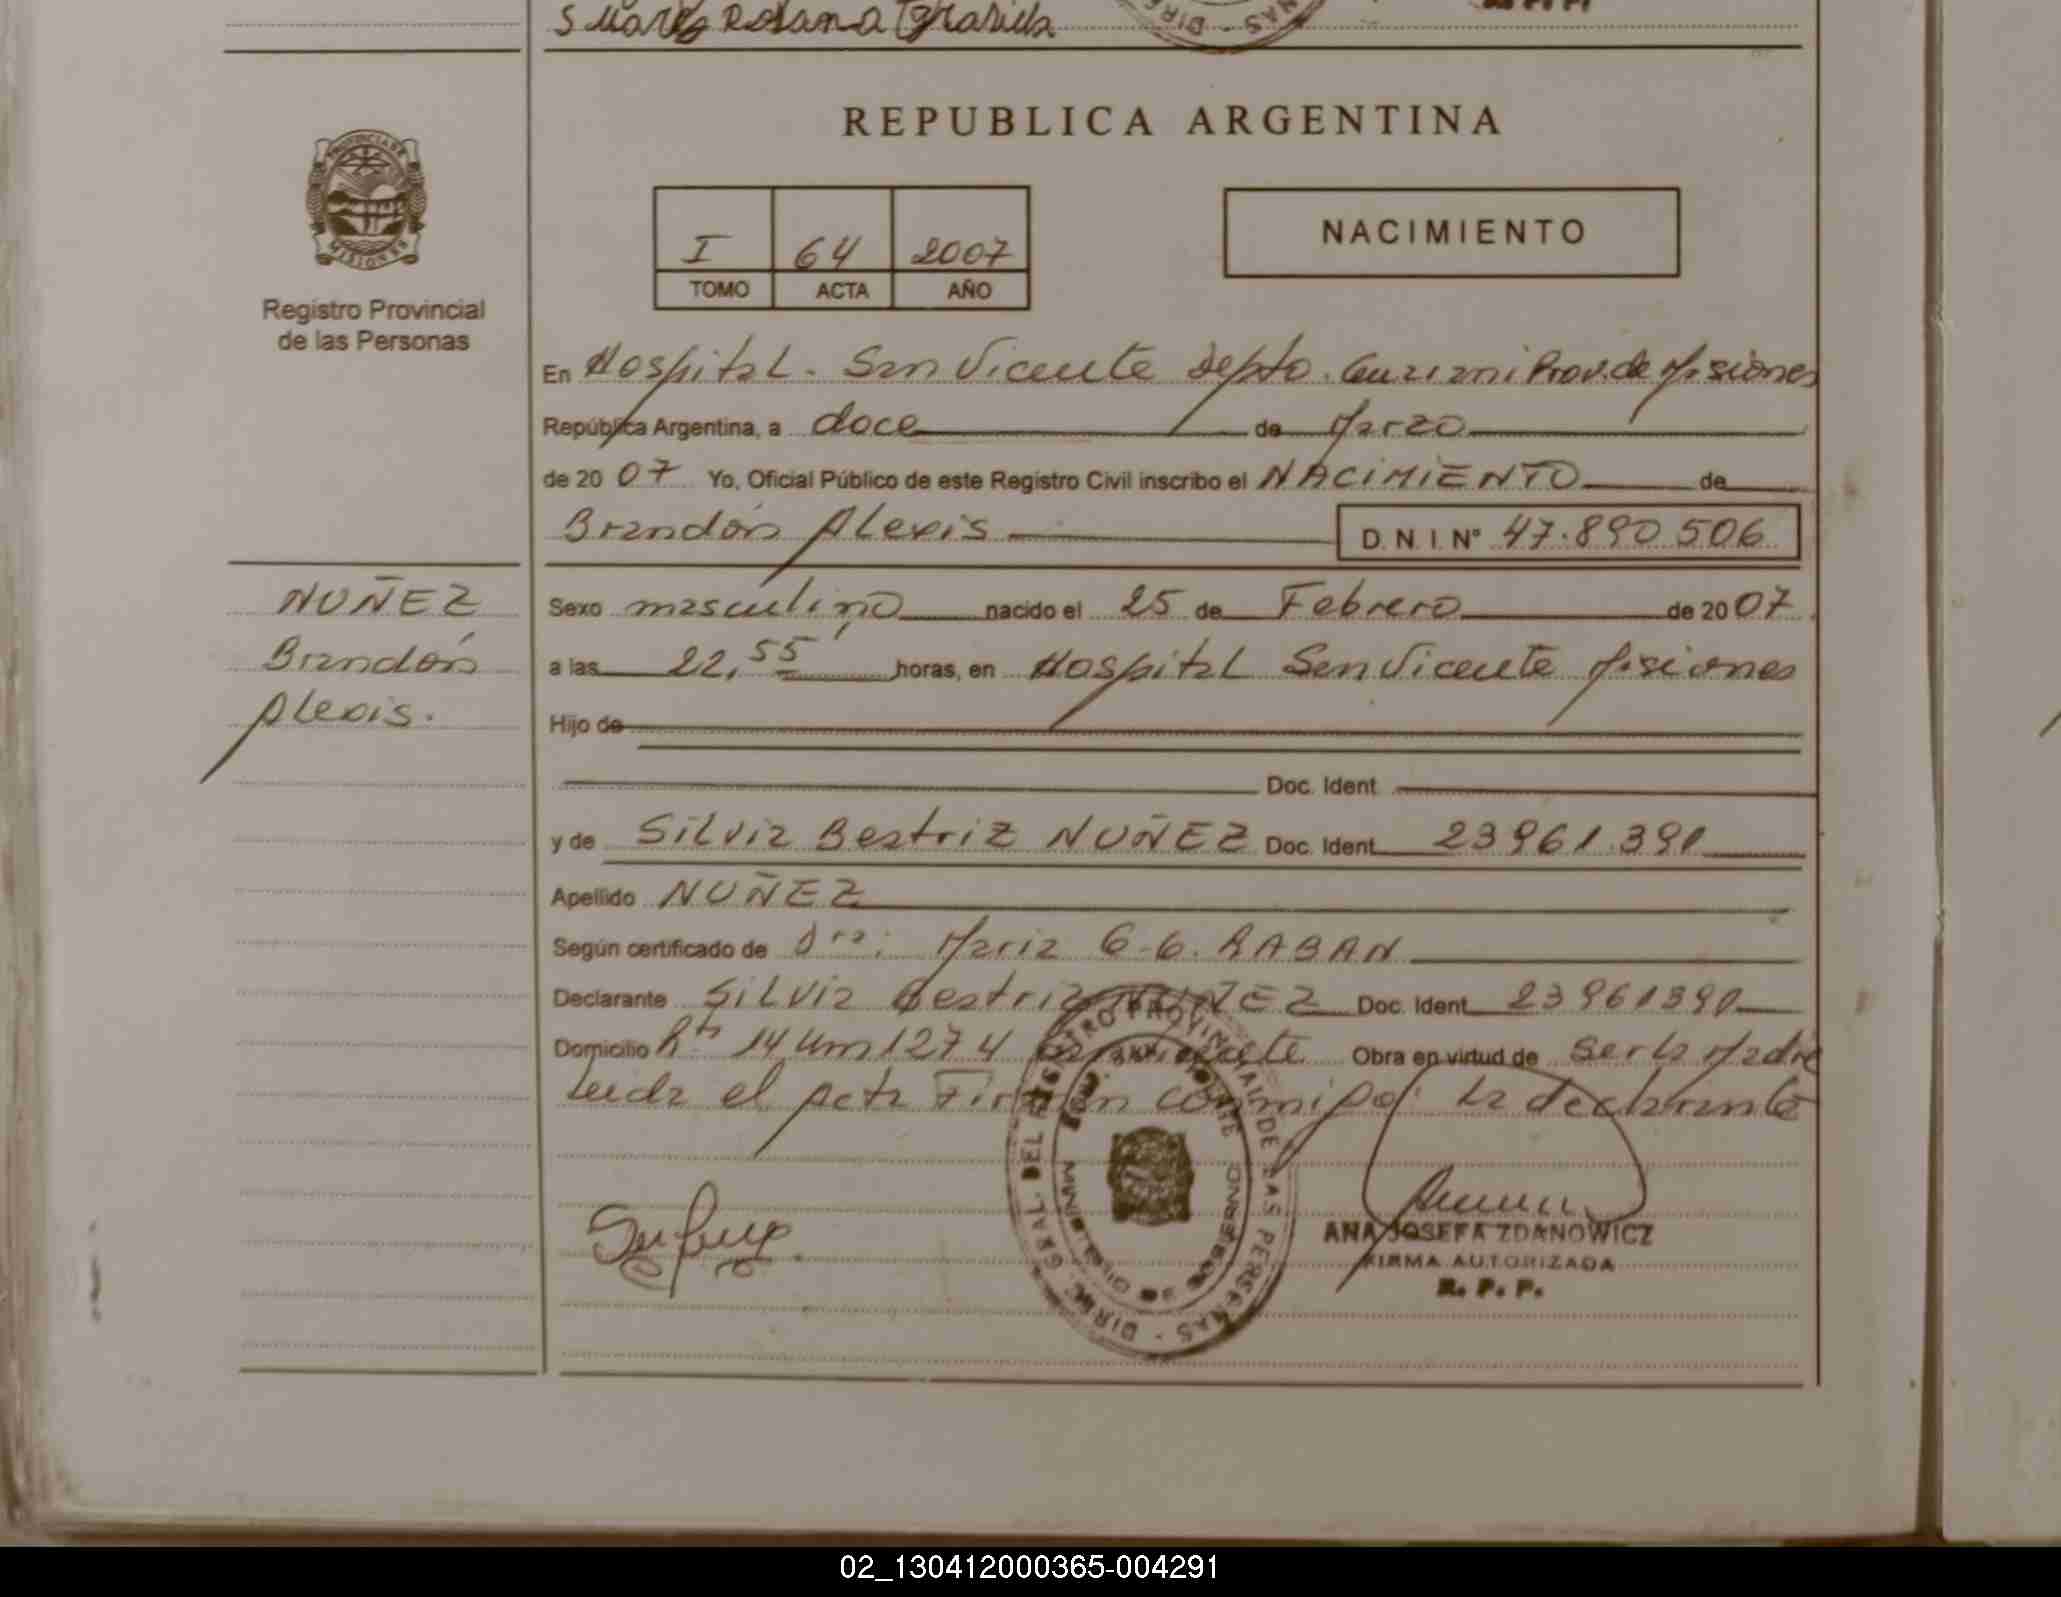 Suarez Rosana Graciela
REPUBLICA ARGENTINA
PROVINCIA DE
MISIONES
Registro Provincial
de las Personas
I 64 2007
TOMO ACTA AÑO
NACIMIENTO
En Hospital - San Vicente Depto. Guarani Prov. de Misiones
República Argentina, a doce de Marzo
de 20 07 Yo, Oficial Público de este Registro Civil inscribo el NACIMIENTO de
Brandón Alexis D. N. I. N° 47.890.506
NUÑEZ
Brandón
Alexis.
Sexo masculino nacido el 25 de Febrero de 20 07
a las 22,55 horas, en Hospital San Vicente Misiones
Hijo de
Doc. Ident.
y de Silvia Beatriz NUÑEZ Doc. Ident. 23961.391
Apellido NUÑEZ
Según certificado de Dra: Maria G. G. RABAN
Declarante Silvia Beatriz NUÑEZ Doc. Ident. 23961391
Domicilio Rta 14 Km 1274 San Vicente Obra en virtud de ser la Madre
Leida el Acta Firman conmigo: la declarante
DIREC. GRAL. DEL REGISTRO PROVINCIAL DE LAS PERSONAS
ANA JOSEFA ZDANOWICZ
FIRMA AUTORIZADA
R. P. P.
02_130412000365-004291